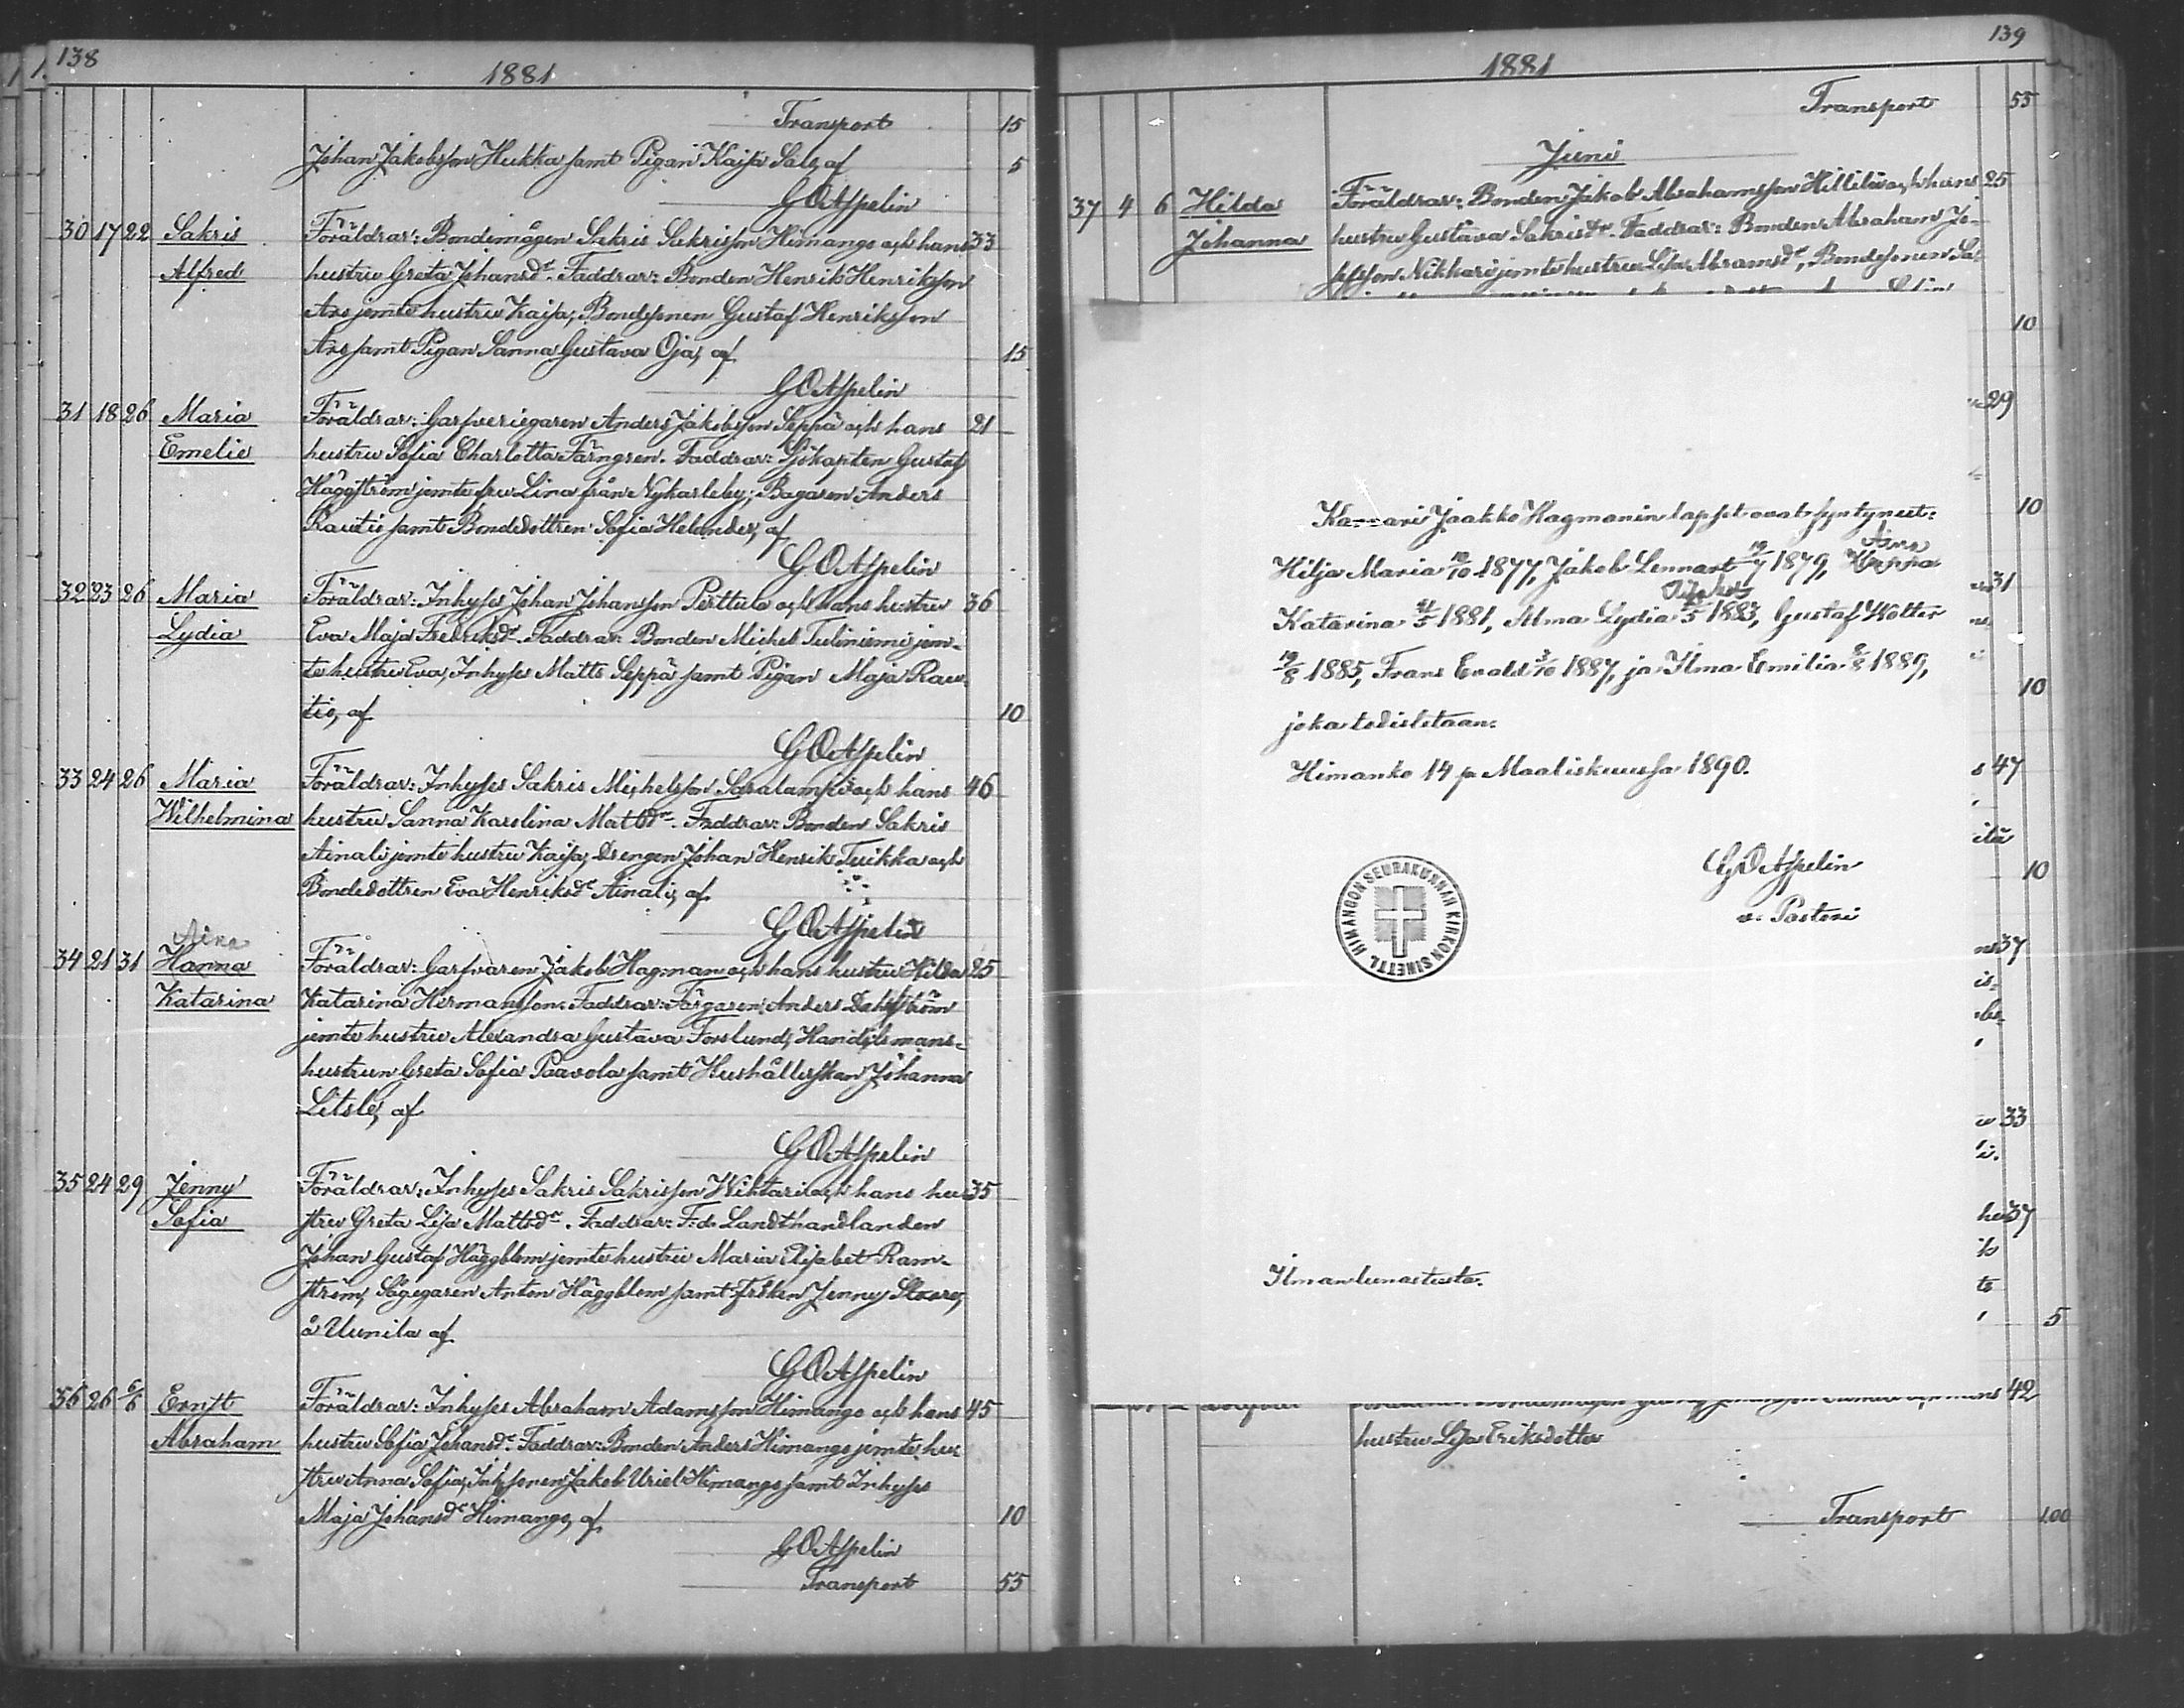 138
1881
Transport 15
Johan Jakobsson Hukka samt Pigan Kaisa Salo, af 5
G O Aspelin
30 17 22 Sakris Föräldrar: Bondemågen Sakris Sakrisson Himango och hans 33
Alfred hustru Greta Johansdr. Faddrar: Bonden Henrik Henriksson
jemte hustru Kaisa, Bondesonen Gustaf Henriksson
samt Pigan Sanna Gustava Oja, af 15
G O Aspelin
31 18 26 Maria Föräldrar: Garfveriegaren Anders Jakobsson Seppä och hans 21
Emelie hustru Sofia Charlotta Färngren. Faddrar: Sjökapten Gustaf
Häggström jemte fru Lina från Nykarleby; Bagaren Anders
Rautio samt Bondedottren Sofia Helander, af
G O Aspelin
32 23 26 Maria Föräldrar: Inhyses Johan Johansson Perttula och hans hustru 36
Lydia Eva Maja Fredriksdr. Faddrar: Bonden Michel Tuliniemi jem-
te hustru Eva, Inhyses Matts Seppä samt Pigan Maja Rau-
tio, af 10
G O Aspelin
33 24 26 Maria Föräldrar: Inhyses Sakris Michelsson Saralampi och hans 46
Wilhelmina hustru Sanna Karolina Mattsdr. Faddrar: Bonden Sakris
Ainali jemte hustru Kaisa, Drengen Johan Henrik Tuikka och
Bondedottren Eva Henriksdr Ainali, af
G O Aspelin
Aina
34 21 31 Hanna Föräldrar: Garfvaren Jakob Hagman och hans hustru Hilda 25
Katarina Katarina Hermansson. Faddrar: Färgaren Anders Dahlström
jemte hustru Alexandra Gustava Forslund, Handelsmans-
hustrun Greta Sofia Paavola samt Hushållerskan Johanna
Litsle, af
G O Aspelin
35 24 29 Jenny Föräldrar: Inhyses Sakris Sakrisson Wihtari och hans hu- 35
Sofia stru Greta Lisa Mattsdr. Faddrar: F:d. Landthandlanden
Johan Gustaf Häggblom jemte hustru Maria Elisabet Ram-
ström, Sågegaren Anton Häggblom samt Fröken Jenny
à Uunila af
G O Aspelin
36 26 6/6 Ernst Föräldrar: Inhyses Abraham Adamsson Himango och hans 45
Abraham hustru Sofia Johansdr. Faddrar: Bonden Anders Himango jemte hu-
stru Anna Sofia, Jakob Uriel Himango samt Inhyses
Maja Johansdr Himango, af 10
G O Aspelin
Transport 55
139
1881
Transport 55
Juni
37 4 6 Hilda Föräldrar: Bonden Jakob Abrahamsson Hillilä och hans 25
Johanna hustru Gustava Sakrisdr. Faddrar: Bonden Abraham Jo-
sefsson Nikkari jemte hustru Lisa Abramsdr, Bondesonen Sa-
10
29
10
Karvari Jaakko Hagmanin lapset ovat syntyneet:
Aina
Hilja Maria 10/10 1877, Jakob Lennart 19/7 1879, Hanna
31
Katarina 21/5 1881, Alma Lydia 1883, Gustaf Wolter
19/8 1885, Frans Evald 3/10 1887, ja Ilma Emilia 8/8 1889,
10
joka todistetaan.
Himanko 14 p Maaliskuussa 1890.
47
G O Aspelin
10
v. Pastori
HIMANGON SEURAKUNNAN KIRKON SINETTI
37
33
37
Ilman lunastusta.
5
42
hustru Lisa Eriksdotter
Transport 100